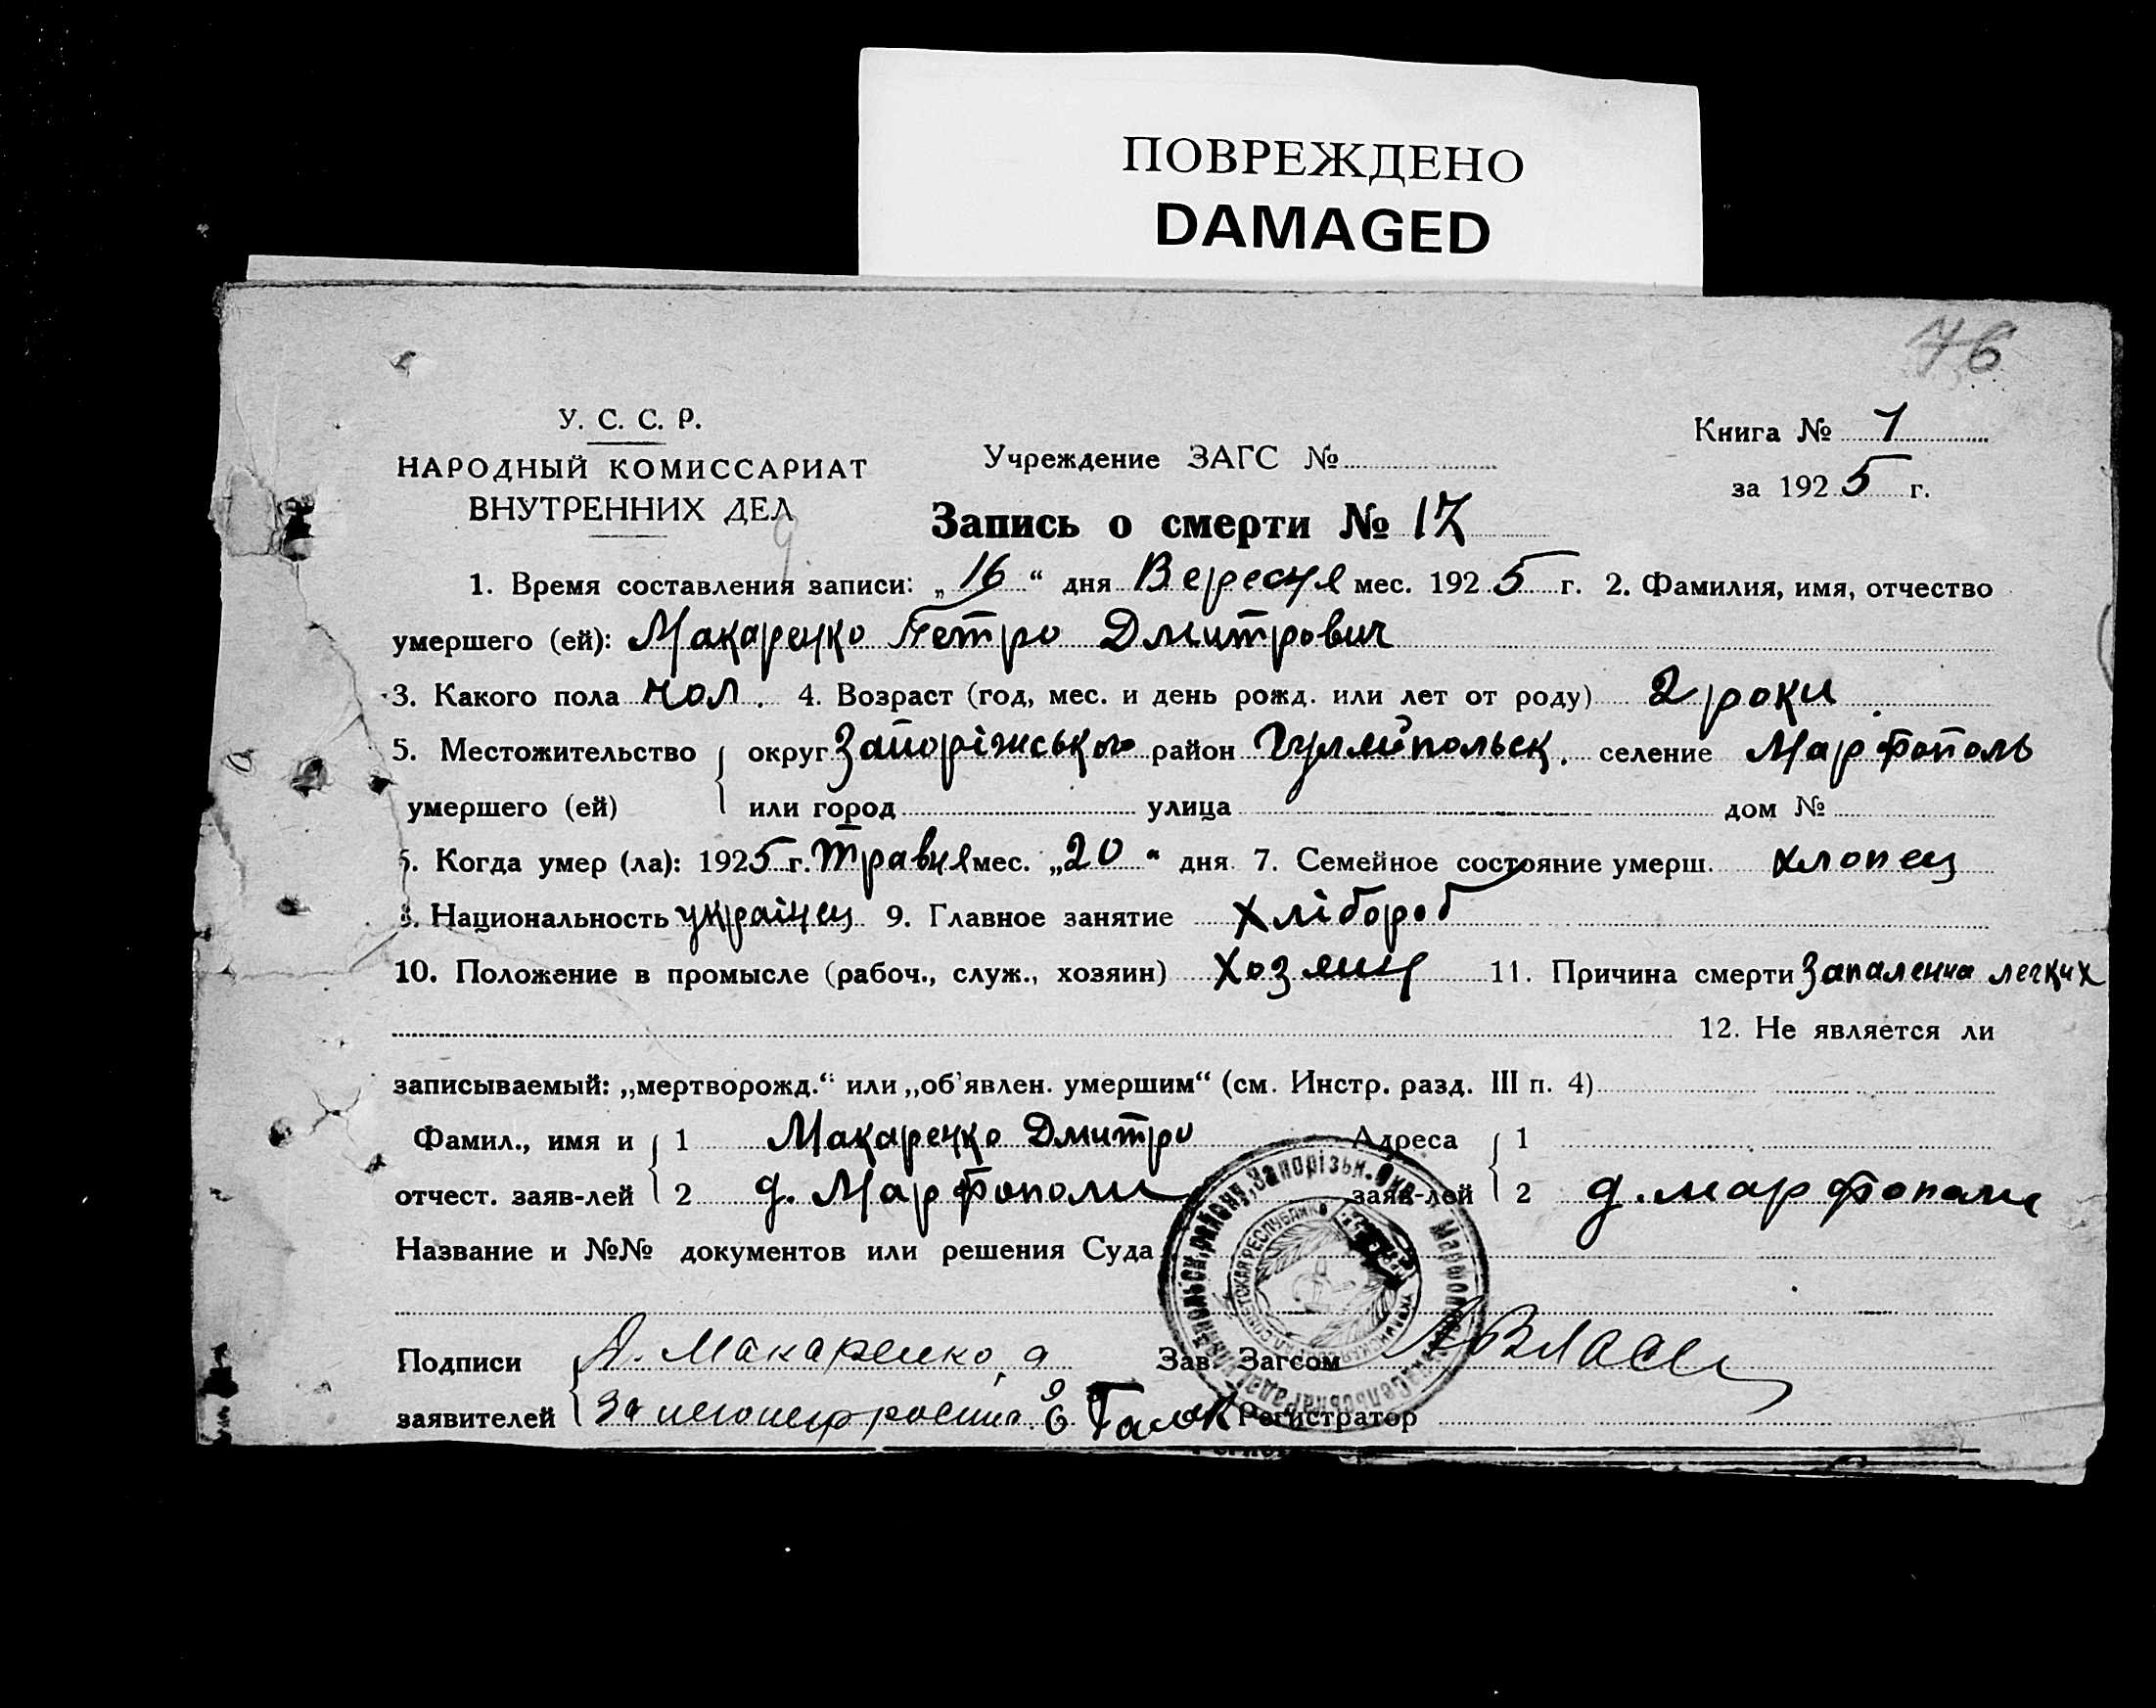 ПОВРЕЖДЕНО
DAMAGED
76
У. С. С. Р.
НАРОДНЫЙ КОМИССАРИАТ
ВНУТРЕННИХ ДЕЛ
Учреждение ЗАГС №
Книга № 1
за 1925 г.
Запись о смерти № 17
1. Время составления записи: „16“ дня Вересня мес. 1925 г. 2. Фамилия, имя, отчество
умершего (ей): Макаренко Петро Дмитрович
3. Какого пола чол. 4. Возраст (год, мес. и день рожд. или лет от роду) 2 роки
5. Местожительство округ Запоріжського район Гуляйпольск. селение Марфополь
умершего (ей) или город улица дом №
6. Когда умер (ла): 1925 г. Травня мес. „20“ дня 7. Семейное состояние умерш. хлопец
8. Национальность українец 9. Главное занятие Хлібороб
10. Положение в промысле (рабоч., служ., хозяин) Хозяин 11. Причина смерти Запаления легких
12. Не является ли
записываемый: „мертворожд.“ или „об'явлен. умершим“ (см. Инстр. разд. III п. 4)
Фамил., имя и 1 Макаренко Дмитро Адреса 1
отчест. заяв-лей 2 д. Марфополи заяв-лей 2 д. марфополи
Название и №№ документов или решения Суда
Подписи Д. Макаренко, а Зав. Загсом
заявителей За Регистратор